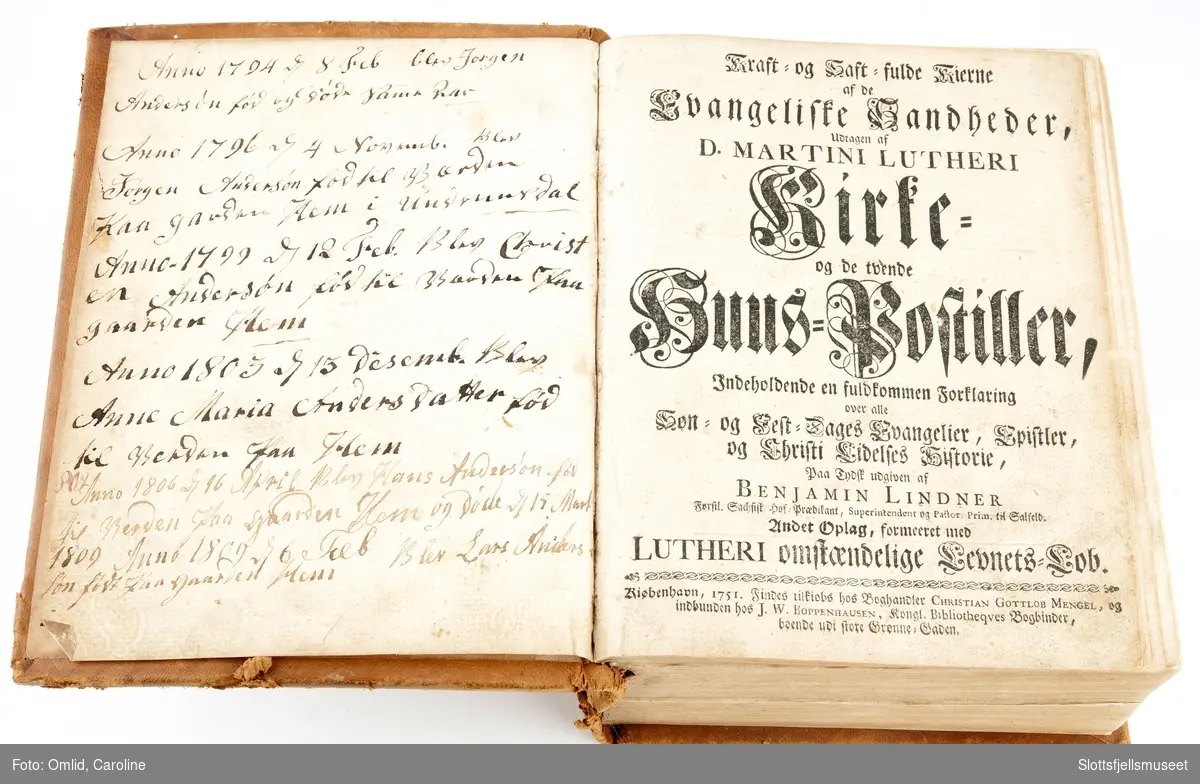 Anno 1794 d 8 Feb blev Jørgen
Andersøn fød og døde samme Aar
Anno 1796 d 4 Novemb. Blev
Jørgen Andersøn fød til Verden
Paa gaarden Hem i Undrumsdal
Anno 1799 d 12 Feb. Blev Christ
en Andersøn fød til Verden Paa
gaarden Hem
Anno 1803 d 13 Desemb. Blev
Anne Maria Andersdatter fød
til Verden Paa Hem
Anno 1806 d 16 April Blev Hans Andersøn fød
til Verden Paa gaarden Hem og døde d 15 Mart
1809 Anno 1809 d 6 Feb Blev Lars Anders
søn fød Paa gaarden Hem
Kraft- og Saft-fulde Kierne
af de
Evangeliske Sandheder,
Udtagen af
D. MARTINI LUTHERI
Kirke-
og de tvende
Huus-Postiller,
Indeholdende en fuldkommen Forklaring
over alle
Søn- og Fest-Dages Evangelier, Epistler,
og Christi Lidelses Historie,
Paa Tydsk udgiven af
BENJAMIN LINDNER
Førstl. Sachsisk Hof-Prædikant, Superintendent og Pastor Prim. til Salfeld.
Andet Oplag, formeeret med
LUTHERI omstændelige Levnets-Løb.
Kiøbenhavn, 1751. Findes tilkiøbs hos Boghandler CHRISTIAN GOTTLOB MENGEL, og
indbunden hos J. W. BOPPENHAUSEN, Kongl. Bibliotheqves Bogbinder,
boende udi store Grønne-Gaden.
Foto: Omlid, Caroline
Slottsfjellsmuseet